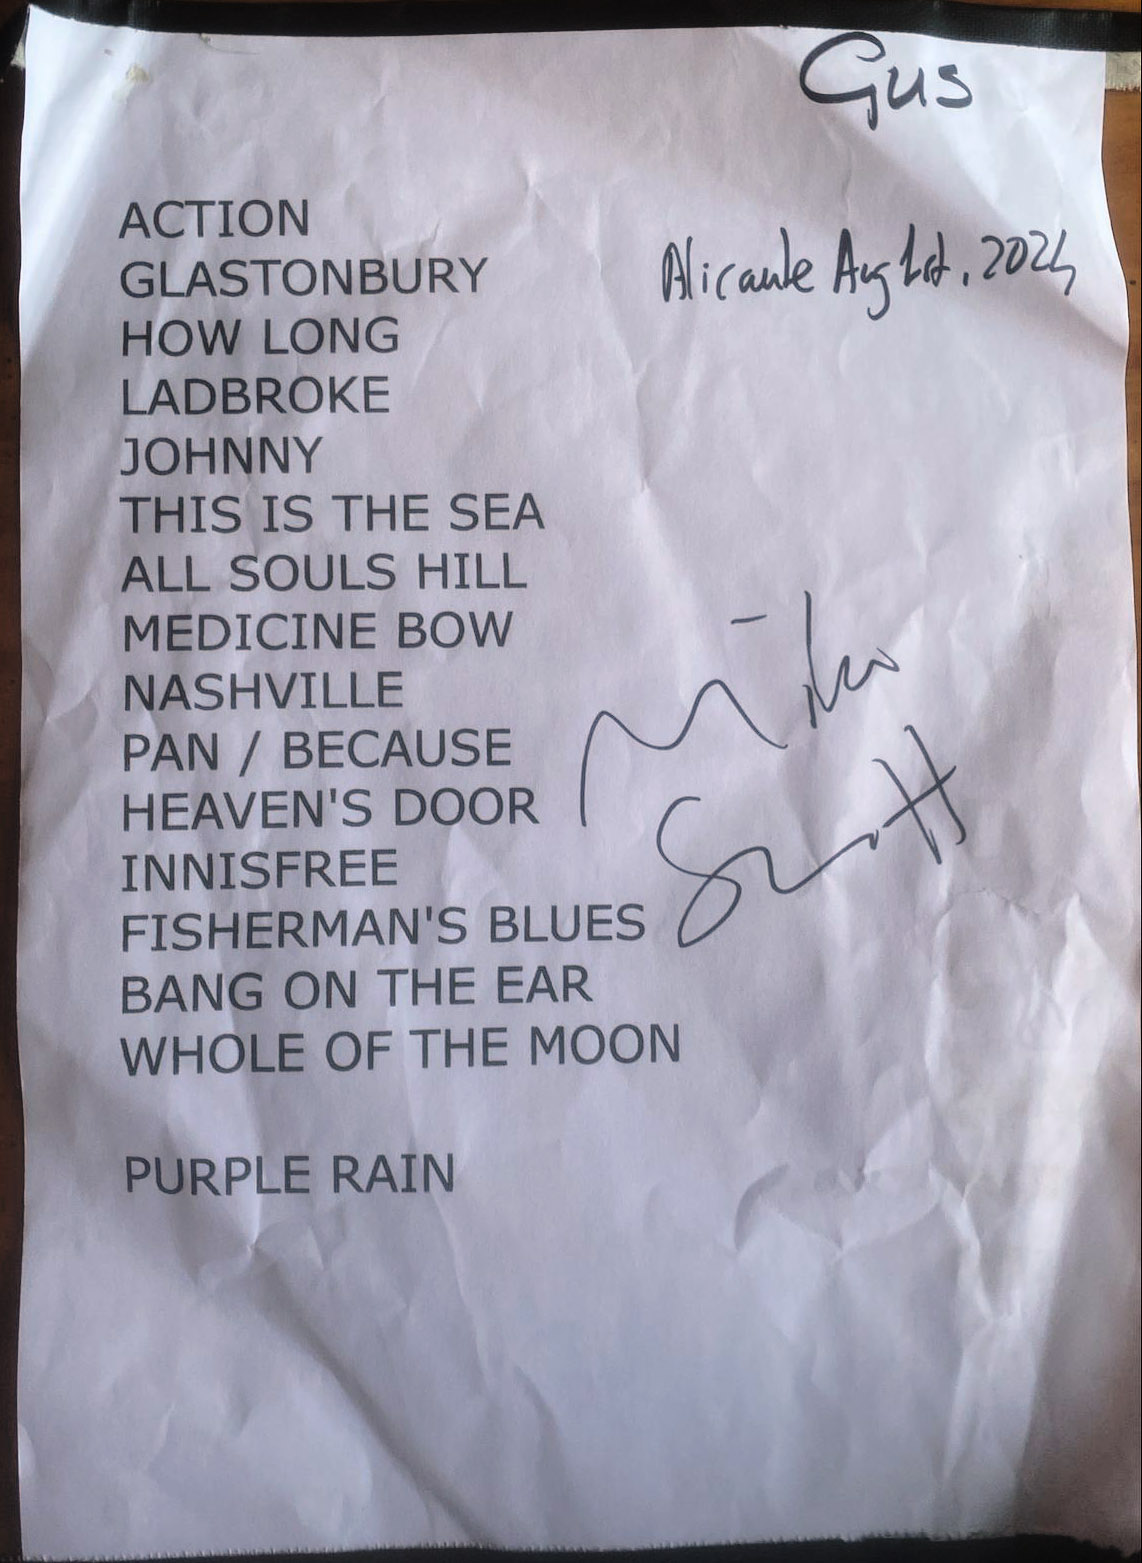 Gus
ACTION
GLASTONBURY
Alicante Aug 1st, 2024
HOW LONG
LADBROKE
JOHNNY
THIS IS THE SEA
ALL SOULS HILL
MEDICINE BOW
NASHVILLE
PAN / BECAUSE
HEAVEN'S DOOR
INNISFREE
FISHERMAN'S BLUES
BANG ON THE EAR
WHOLE OF THE MOON
PURPLE RAIN
Mike
Scott